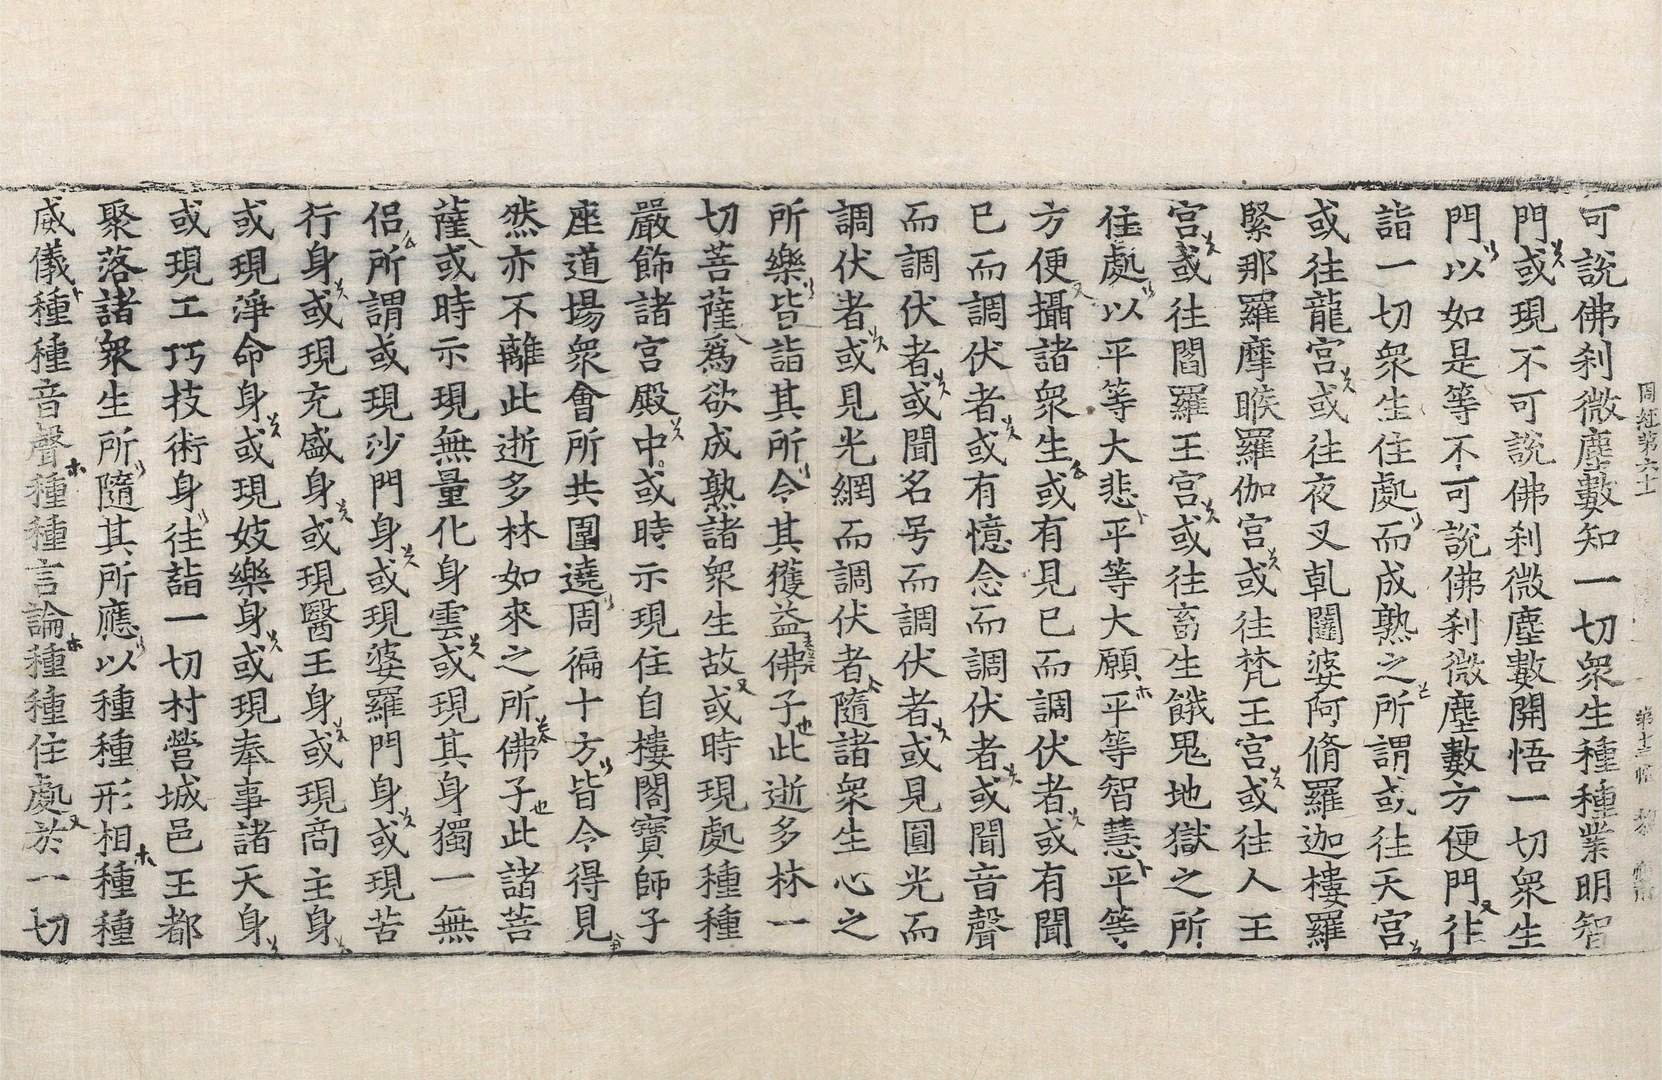 周經第六十一
可說佛刹微塵數知一切衆生種種業明智
門或現不可說佛刹微塵數開悟一切衆生
門以如是等不可說佛刹微塵數方便門往
詣一切衆生住處而成熟之所謂或往天宮
或往龍宮或往夜叉乹闥婆阿脩羅迦樓羅
緊那羅摩睺羅伽宮或往梵王宮或往人王
宮或往閻羅王宮或往畜生餓鬼地獄之所
住處以平等大悲平等大願平等智慧平等
方便攝諸衆生或有見已而調伏者或有聞
已而調伏者或有憶念而調伏者或聞音聲
而調伏者或聞名号而調伏者或見圓光而
調伏者或見光網而調伏者隨諸衆生心之
所樂皆詣其所令其獲益佛子此逝多林一
切菩薩爲欲成熟諸衆生故或時現處種種
嚴飾諸宮殿中或時示現住自樓閣寶師子
座道場衆會所共圍遶周徧十方皆令得見
然亦不離此逝多林如來之所佛子此諸菩
薩或時示現無量化身雲或現其身獨一無
侶所謂或現沙門身或現婆羅門身或現苦
行身或現充盛身或現醫王身或現商主身
或現淨命身或現妓樂身或現奉事諸天身
或現工巧技術身往詣一切村營城邑王都
聚落諸衆生所隨其所應以種種形相種種
威儀種種音聲種種言論種種住處於一切